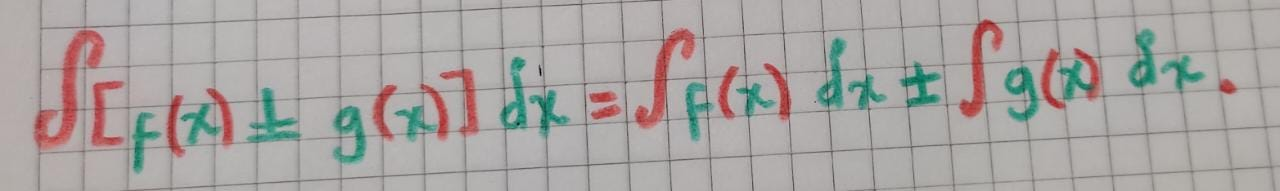 ∫[f(x) ± g(x)] dx = ∫f(x) dx ± ∫g(x) dx.